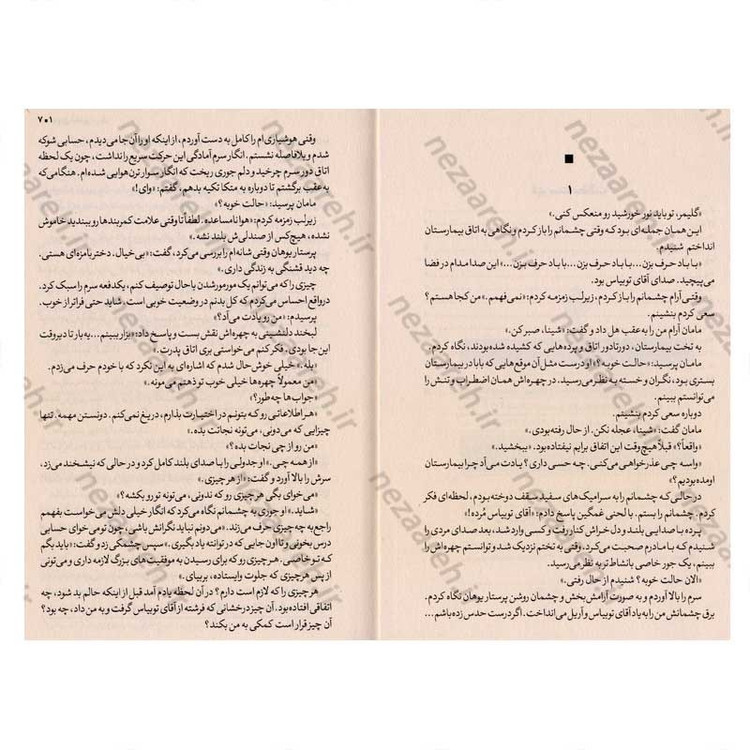 ■
۱
«گلیمر، تو باید نور خورشید رو منعکس کنی.»
این همان جمله‌ای بود که وقتی چشمانم را باز کردم و نگاهی به اتاق بیمارستان
انداختم شنیدم.
«با باد حرف بزن... با باد حرف بزن... با باد حرف بزن...» این صدا مدام در فضا
می‌پیچید. صدای آقای توبیاس بود.
وقتی آرام چشمانم را باز کردم، زیرلب زمزمه کردم: «نمی‌فهمم.» من کجا هستم؟
سعی کردم بنشینم.
مامان آرام من را به عقب هل داد و گفت: «شینا، صبر کن.»
به تخت بیمارستان، دورتادور اتاق و پرده‌هایی که کشیده شده بودند، نگاه کردم.
مامان پرسید: «حالت خوبه؟» او درست مثل آن موقع‌هایی که بابا در بیمارستان
بستری بود، نگران و خسته به نظر می‌رسید. در چهره‌اش همان اضطراب و تنش را
می‌توانستم ببینم.
دوباره سعی کردم بنشینم.
مامان گفت: «شینا، عجله نکن. از حال رفته بودی.»
«واقعاً؟» قبلاً هیچ‌وقت این اتفاق برایم نیفتاده بود. «ببخشید.»
«واسه چی عذرخواهی می‌کنی. چه حسی داری؟ یادت می‌آد چرا بیمارستان
اومده بودیم؟»
در حالی که چشمانم را به سرامیک‌های سفید سقف دوخته بودم، لحظه‌ای فکر
کردم. چشمانم را بستم. با لحنی غمگین پاسخ دادم: «آقای توبیاس مُرده!»
پرده با صدایی بلند و دل‌خراش کنار رفت و کسی وارد شد، بعد صدای مردی را
شنیدم که با مادرم صحبت می‌کرد. وقتی به تختم نزدیک شد و توانستم چهره‌اش را
ببینم، یک جور خاصی بانشاط‌تر به نظر می‌رسید.
«الان حالت خوبه؟ شنیدم از حال رفتی.»
سرم را بالا آوردم و به صورت آرامش‌بخش و چشمان روشن پرستار یوهان نگاه کردم.
برق چشمانش من را به یاد آقای توبیاس و آریل می‌انداخت. اگر درست حدس زده باشم...
۷۰۱
وقتی هوشیاری‌ام را کامل به دست آوردم، از اینکه او را آن‌جا می‌دیدم، حسابی شوکه
شدم و بلافاصله نشستم. انگار سرم آمادگی این حرکت سریع را نداشت، چون یک لحظه
اتاق دور سرم چرخید و دلم جوری ریخت که انگار سوار ترن هوایی شده‌ام. هنگامی که
به عقب برگشتم تا دوباره به متکا تکیه بدهم، گفتم: «وای!»
مامان پرسید: «حالت خوبه؟»
زیرلب زمزمه کردم: «هوا نامساعده. لطفاً تا وقتی علامت کمربندها رو ببندید خاموش
نشده، هیچ‌کس از صندلی‌ش بلند نشه.»
پرستار یوهان وقتی شانه‌ام را بررسی می‌کرد، گفت: «بی‌خیال، دختر بامزه‌ای هستی.
چه دید قشنگی به زندگی داری.»
چیزی را که می‌توانم یک مورمور شدن باحال توصیف کنم، یکدفعه سرم را سبک کرد.
درواقع احساس می‌کردم که کل بدنم در وضعیت خوبی است، شاید حتی فراتر از خوب.
پرسیدم: «من رو یادت می‌آد؟»
لبخند دلنشینی به چهره‌اش نقش بست و پاسخ داد: «بزار ببینم... یه بار تا دیروقت
این جا بودی. فکر کنم می‌خواستی بری اتاق پدرت.»
«بله.» خیلی خوش حال شدم که اشاره‌ای به این نکرد که با خودم حرف می‌زدم.
«من معمولاً چهره‌ها خیلی خوب تو ذهنم می‌مونه.»
«جواب‌ها چطور؟»
«هر اطلاعاتی رو که بتونم در اختیارت بذارم، دریغ نمی‌کنم. دونستن مهمه. تنها
چیزایی که می‌دونی، می‌تونه نجاتت بده.»
«من رو از چی نجات بده؟»
«از همه چی.» او جدولی را با صدای بلند کامل کرد و در حالی که نیشخند می‌زد،
سرش را بالا آورد و گفت: «از هر چیزی.»
«می‌خوای بگی هر چیزی رو که ندونی، می‌تونه تو رو بکشه؟»
«شاید.» او جوری به چشمانم نگاه می‌کرد که انگار خیلی دلش می‌خواست بفهمم
راجع به چه چیزی حرف می‌زند. «می‌دونم نباید نگرانش باشی، چون تو می‌خوای حسابی
درس بخونی و تا اون جایی که در توانته یاد بگیری.» سپس چشمکی زد و گفت: «باید بگم
که تو خاصی. هر چیزی رو که برای رسیدن به موفقیت‌های بزرگ لازمه داری و می‌تونی
از پس هر چیزی که جلوت وایستاده، بربیای.»
هر چیزی را که لازم است دارم؟ در آن لحظه یادم آمد قبل از اینکه حالم بد شود، چه
اتفاقی افتاده بود. آن چیز درخشانی که فرشته از آقای توبیاس گرفت و به من داد، چه بود؟
آن چیز قرار است کمکی به من بکند؟
nezaareh.ir
nezaareh.ir
nezaareh.ir
nezaareh.ir
nezaareh.ir
nezaareh.ir
nezaareh.ir
nezaareh.ir
nezaareh.ir